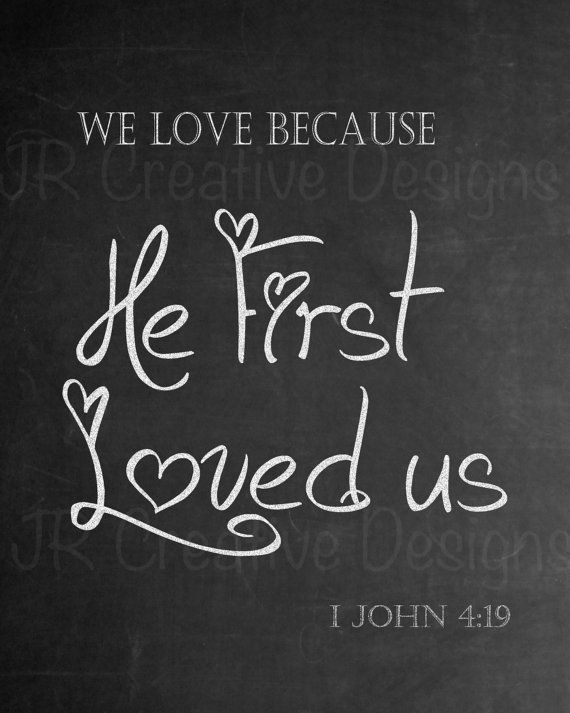 WE LOVE BECAUSE
JR Creative Designs
He First
Loved us
JR Creative Designs
I JOHN 4:19